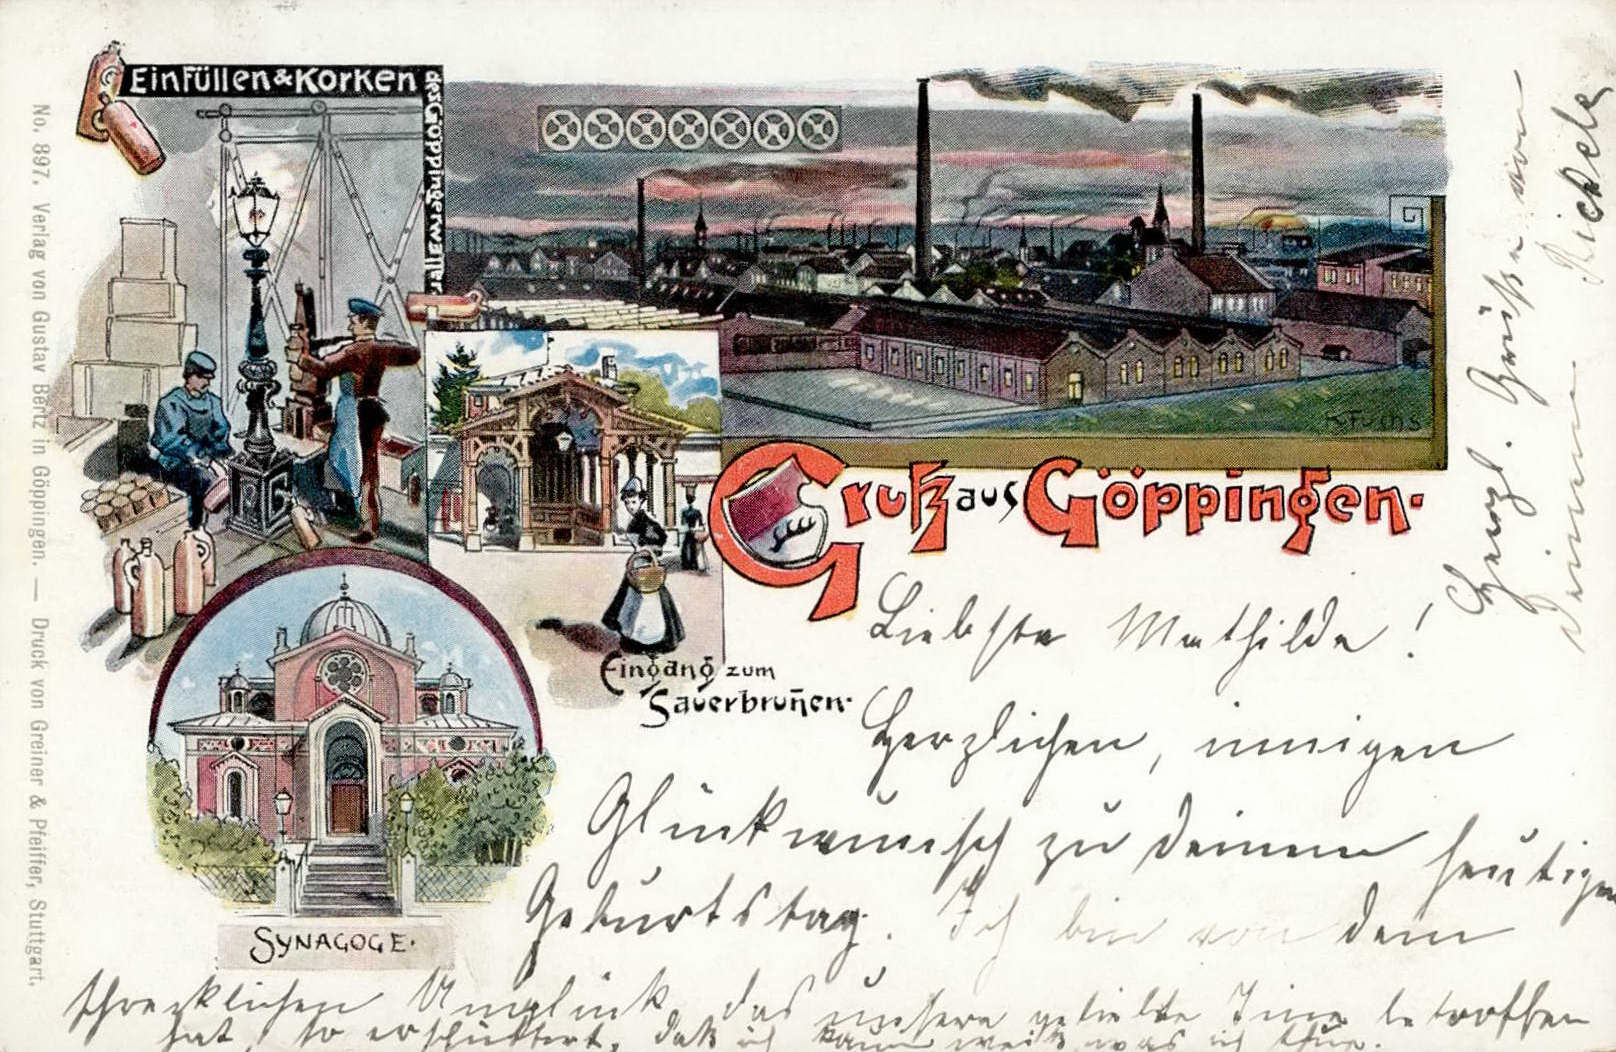 Einfüllen & Korken
des Göppinger Wassers
No. 897. Verlag von Gustav Bertz in Göppingen. — Druck von Greiner & Pfeiffer, Stuttgart.
K Fuchs
Gruß aus Göppingen.
Eingang zum
Sauerbrun̄en.
SYNAGOGE.
Liebste Mathilde!
Herzlichen, innigen
Glückwunsch zu Deinem heutigen
Geburtstag. Ich bin von dem
schrecklichen Unglück, das unsere geliebte betroffen
hat, so erschüttert, daß ich kaum weiß, was ich thue.
Herzl. Grüße von
Deiner Rickele